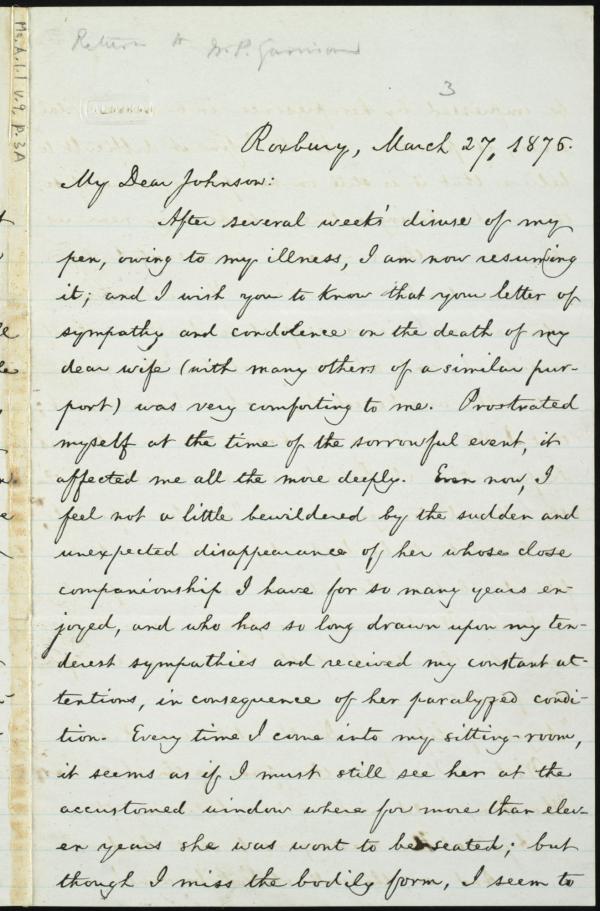 Ms.A.1.1 v.9, p.3A
Return to W.P. Garrison
3
Roxbury, March 27, 1876.
My Dear Johnson:
After several weeks' disuse of my
pen, owing to my illness, I am now resuming
it; and I wish you to know that your letter of
sympathy and condolence on the death of my
dear wife (with many others of a similar pur-
port) was very comforting to me. Prostrated
myself at the time of the sorrowful event, it
affected me all the more deeply. Even now, I
feel not a little bewildered by the sudden and
unexpected disappearance of her whose close
companionship I have for so many years en-
joyed, and who has so long drawn upon my ten-
derest sympathies and received my constant at-
tentions, in consequence of her paralyzed condi-
tion. Every time I come into my sitting-room,
it seems as if I must still see her at the
accustomed window where for more than elev-
en years she was wont to be seated; but
though I miss the bodily form, I seem to